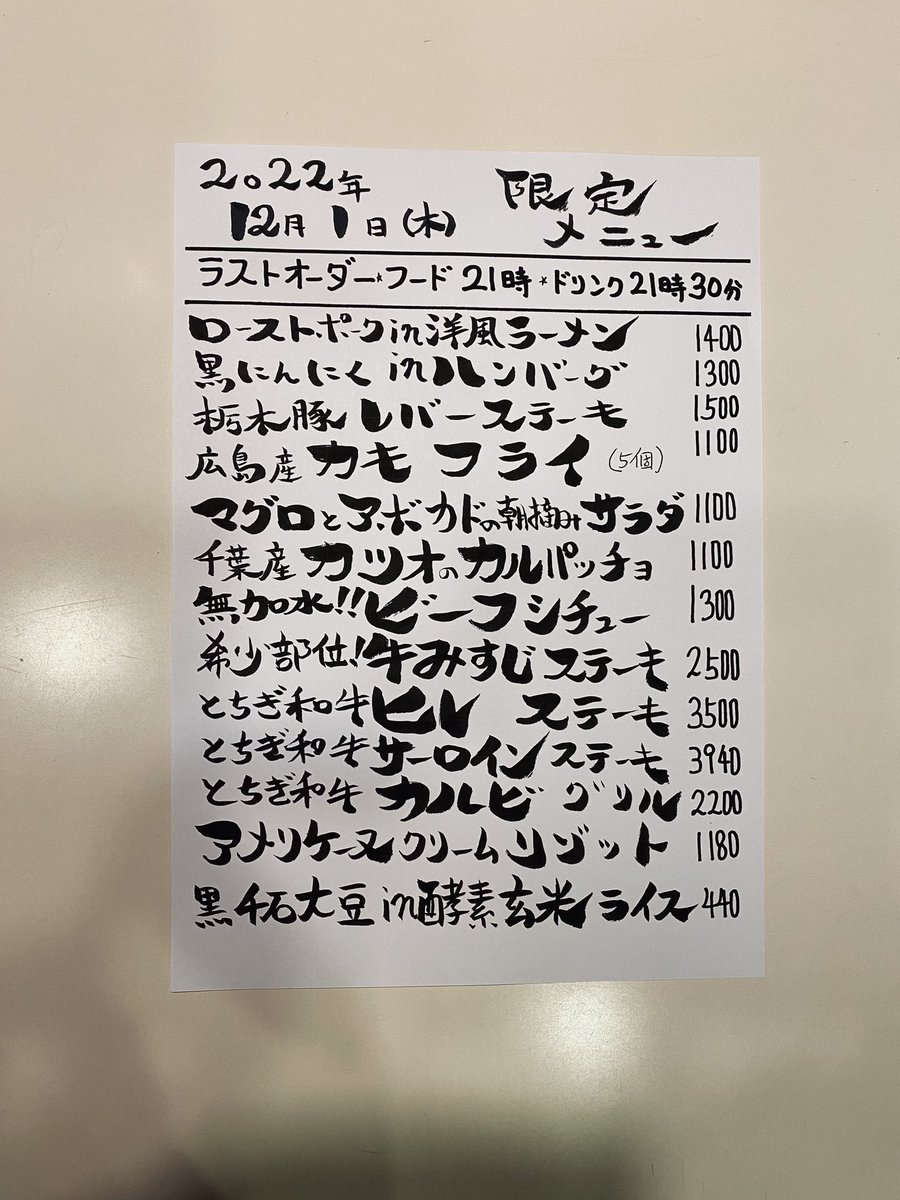 2022年
12月1日(木)
限定
メニュー
ラストオーダー*フード21時*ドリンク21時30分
ローストポークin洋風ラーメン 1400
黒にんにくinハンバーグ 1300
栃木豚レバーステーキ 1500
広島産カキフライ(5個) 1100
マグロとアボカドの朝摘みサラダ 1100
千葉産カツオのカルパッチョ 1100
無加水!!ビーフシチュー 1300
希少部位!牛みすじステーキ 2500
とちぎ和牛ヒレステーキ 3500
とちぎ和牛サーロインステーキ 3940
とちぎ和牛カルビグリル 2200
アメリケーヌクリームリゾット 1180
黒千石大豆in酵素玄米ライス 440